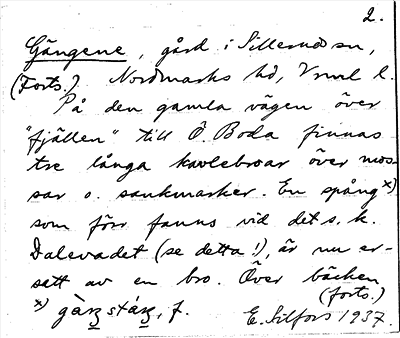 2.
Gängene, gård i Sillerud sn,
(Forts.) Nordmarks hd, Vrml l.
På den gamla vägen över
"fjällen" till Ö. Boda finnas
tre långa kavlebroar över mos-
sar o. sankmarker. En spång x)
som förr fanns vid det s. k.
Dalevadet (se detta!), är nu er-
satt av en bro. Över bäcken
(forts.)
x) f.
E. Silfors 1937.